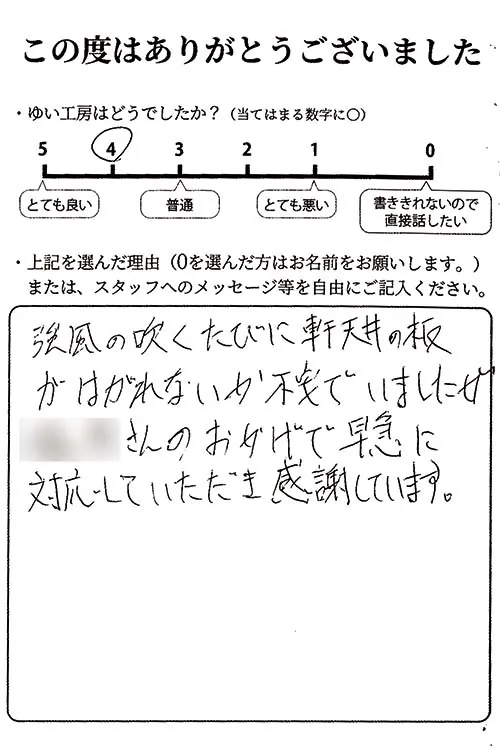 この度はありがとうございました
・ゆい工房はどうでしたか？（当てはまる数字に○）
5 4 3 2 1 0
とても良い 普通 とても悪い 書ききれないので
直接話したい
・上記を選んだ理由（0を選んだ方はお名前をお願いします。）
または、スタッフへのメッセージ等を自由にご記入ください。
強風の吹くたびに軒天井の板
がはがれないか不安でいましたが
さんのおかげで早急に
対応していただき感謝しています。